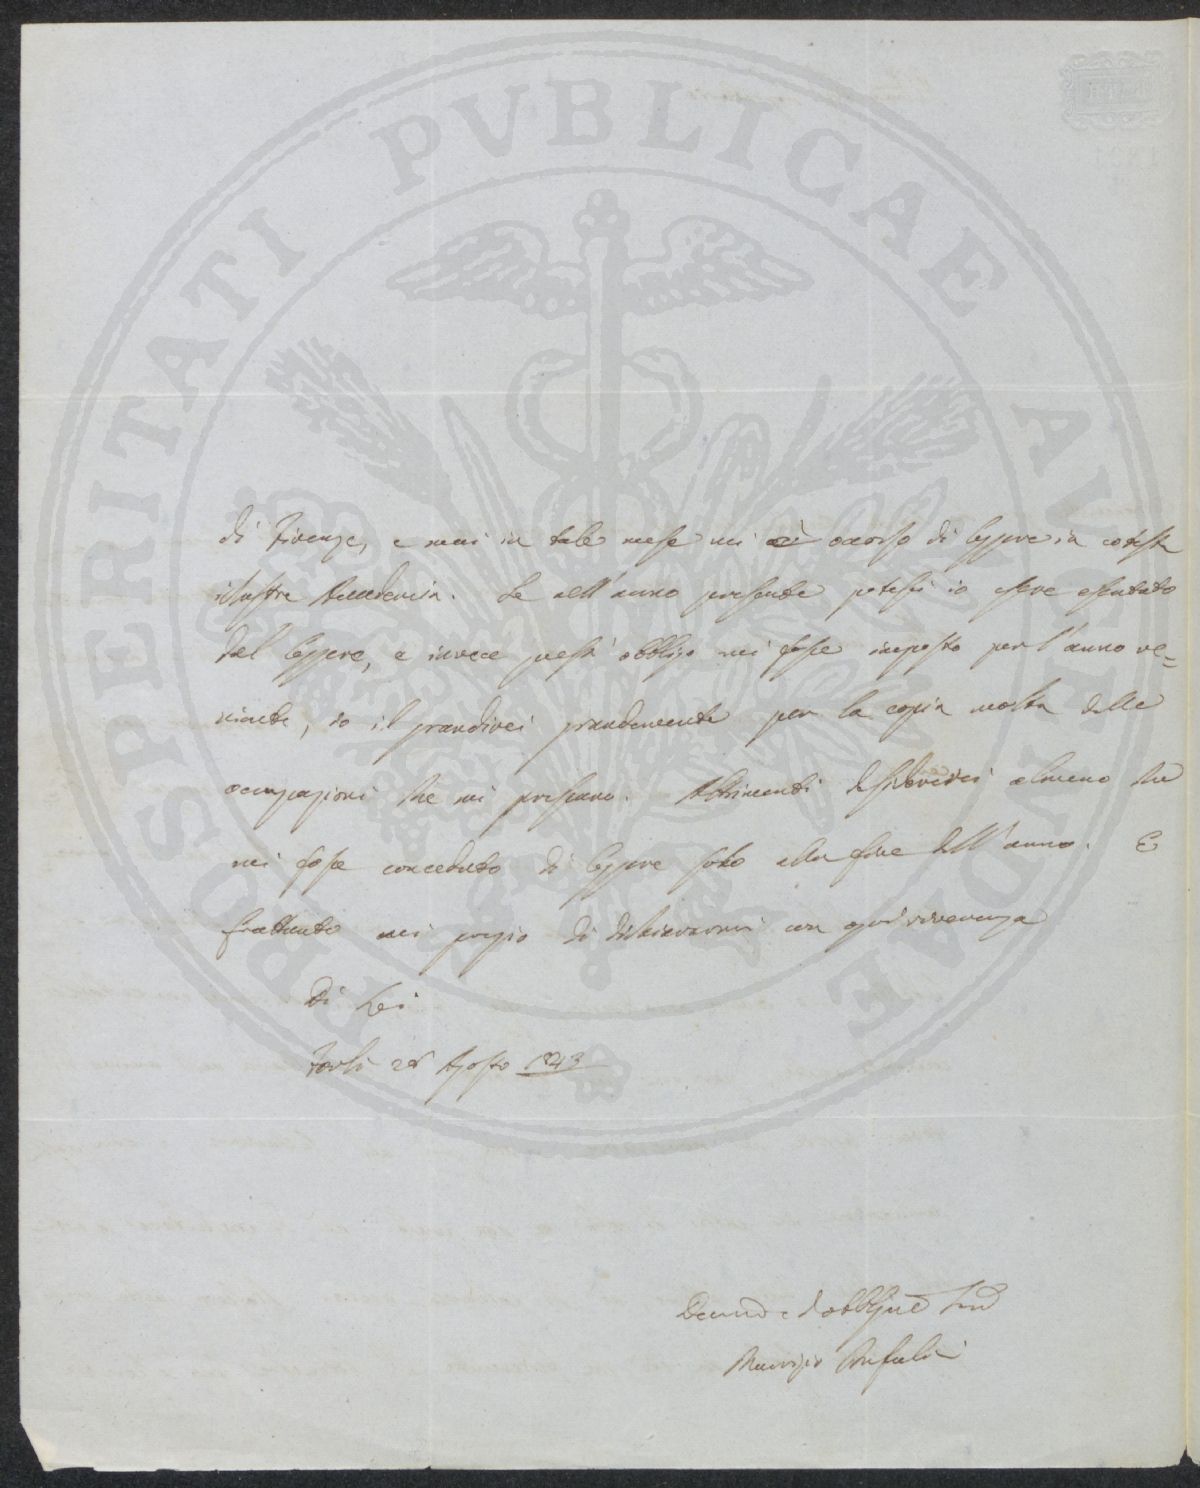 PROSPERITATI PVBLICAE AVGENDAE
di Firenze, e mai in tale mese mi è occorso di leggere in cotesta
illustre Accademia. Se all'anno presente potessi io essere esentato
del leggere, e invece quest'obbligo mi fosse imposto per l'anno ve=
niente, io il gradirei grandemente per la copia molta delle
occupazioni che mi pressano. Altrimenti desidererei almeno che
mi fosse conceduto di leggere solo alla fine dell'anno. E
frattanto mi pregio di dichiararmi con ogni riverenza
Di Lei
Forlì 28 Agosto 1843
Devmo e Obblgmo
Maurizio Bufalini